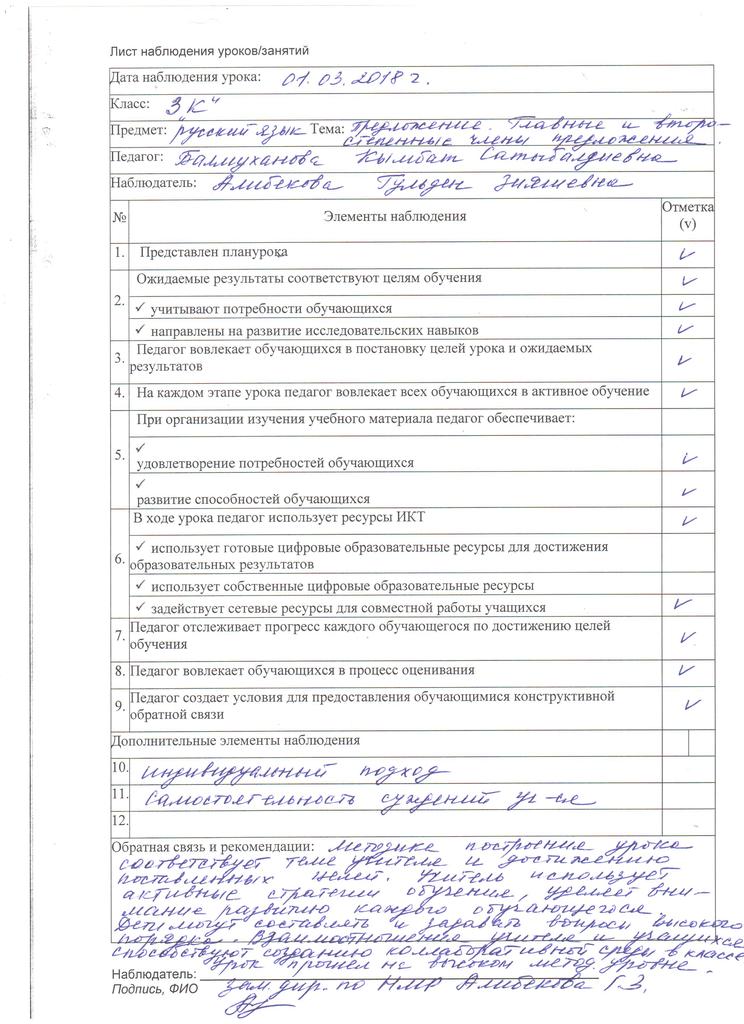 Лист наблюдения уроков/занятий
Дата наблюдения урока: 01.03.2018 г.
Класс: 3 "К"
Предмет: русский язык Тема: Предложение. Главные и второ-
степенные члены предложения.
Педагог: Балмуханова Кымбат Сатыбалдиевна
Наблюдатель: Алибекова Гульден Зияшевна
№ Элементы наблюдения Отметка (v)
1. Представлен планурока ✓
2. Ожидаемые результаты соответствуют целям обучения ✓
✓ учитывают потребности обучающихся ✓
✓ направлены на развитие исследовательских навыков ✓
3. Педагог вовлекает обучающихся в постановку целей урока и ожидаемых
результатов ✓
4. На каждом этапе урока педагог вовлекает всех обучающихся в активное обучение ✓
5. При организации изучения учебного материала педагог обеспечивает:
✓
удовлетворение потребностей обучающихся ✓
✓
развитие способностей обучающихся ✓
6. В ходе урока педагог использует ресурсы ИКТ ✓
✓ использует готовые цифровые образовательные ресурсы для достижения
образовательных результатов
✓ использует собственные цифровые образовательные ресурсы
✓ задействует сетевые ресурсы для совместной работы учащихся ✓
7. Педагог отслеживает прогресс каждого обучающегося по достижению целей
обучения ✓
8. Педагог вовлекает обучающихся в процесс оценивания ✓
9. Педагог создает условия для предоставления обучающимися конструктивной
обратной связи ✓
Дополнительные элементы наблюдения
10. индивидуальный подход
11. самостоятельность суждений уч-ся
12.
Обратная связь и рекомендации: Методике построение урока
соответствует теме учителя и достижению
поставленных целей. Учитель использует
активные стратегии обучение, уделяет вни-
мание развитию каждого обучающегося.
Дети могут составлять и задавать вопросы высокого
порядка. Взаимоотношение учителя и учащихся
способствуют созданию коллаборативной среды в классе
Урок прошел на высоком метод. уровне.
Наблюдатель:
Подпись, ФИО Зам. дир. по НМР Алибекова Г.З.